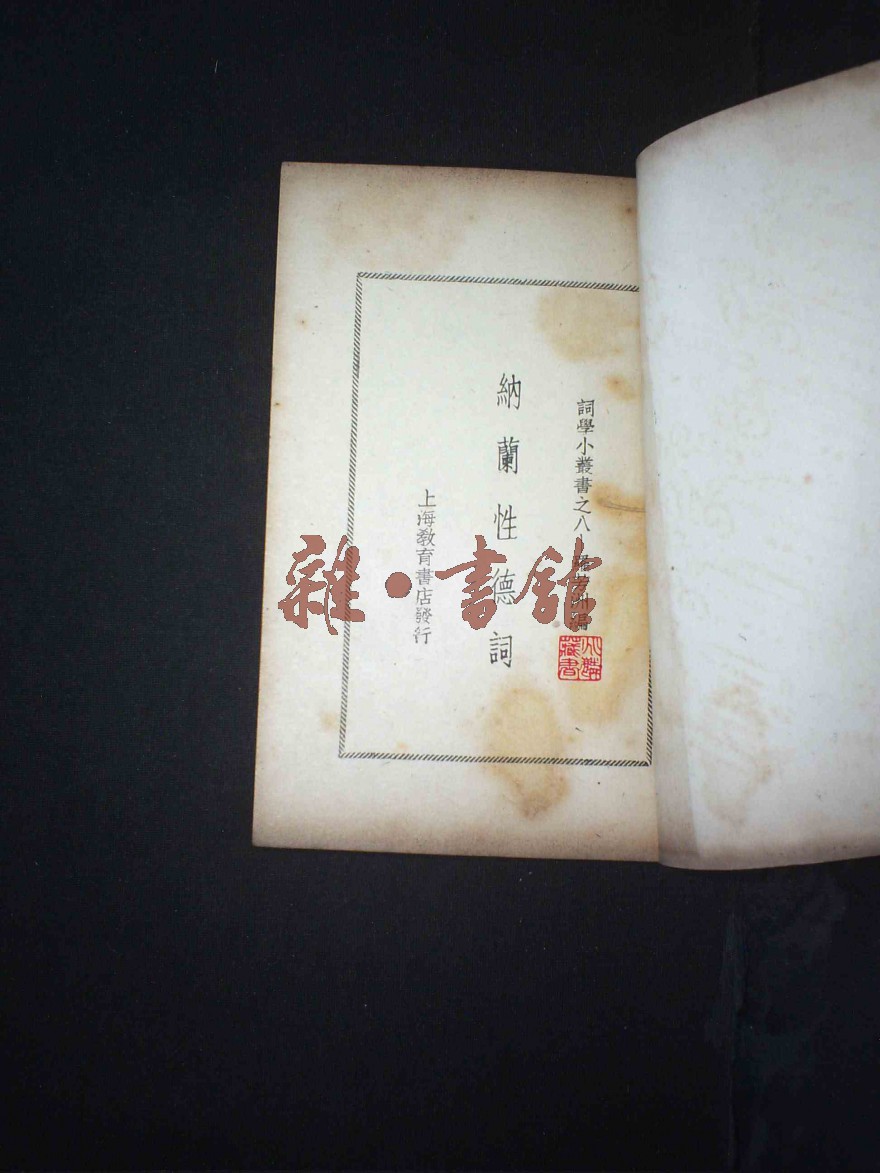 詞學小叢書之八 羅芳洲編
納蘭性德詞
上海教育書店發行
藏書
雜·書館